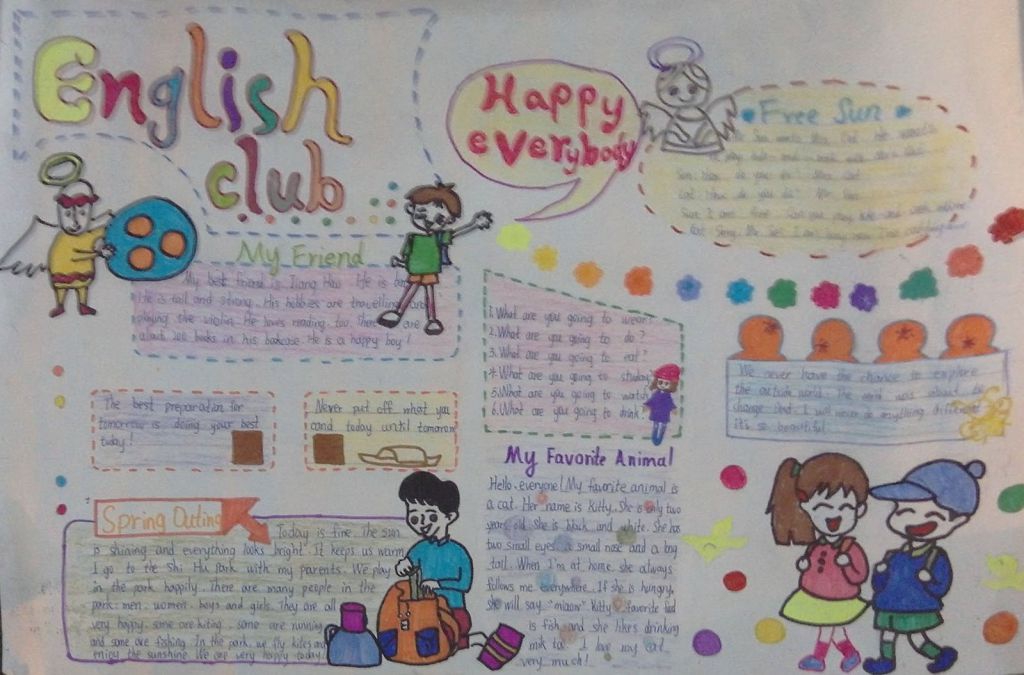 English
club
Happy
everybody
Free Sun
My Friend
My best friend is Jiang Hao. He is
He is tall and strong. His hobbies are travelling and
playing the violin. He loves reading, too. There are
about 200 books in his bookcase. He is a happy boy!
1. What are you going to wear?
2. What are you going to do?
3. What are you going to eat?
4. What are you going to study?
5. What are you going to watch
6. What are you going to drink?
We never have the chance to explore
the outside world. The
change that. I will never do anything different
it's so beautiful.
The best preparation for
tomorrow is doing your best
today!
Never put off what you
cand today until tomorrow
My Favorite Animal
Hello, everyone! My favorite animal is
a cat. Her name is Kitty. She is only two
years old. She is black and white. She has
two small eyes, a small nose and a big
tail. When I'm at home, she always
follows me everywhere. If she is hungry,
she will say "miaow". Kitty favorite
is fish and she likes drinking
milk I love my cat
very much!
Spring Outing
Today is fine. The sun
is shining and everything looks bright. It keeps us warm
I go to the Shi Hu park with my parents. We play
in the park happily. There are many people in the
park: men, women, boys and girls. They are all
very happy. Some are kiting, some are running
and some are fishing. In the park, we fly kites and
enjoy the sunshine. We are very happy today!